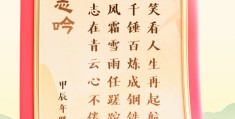 志吟
笑看人生再起航
千锤百炼成钢铁
风霜雪雨任蹉跎
志在青云心不倦
甲辰年